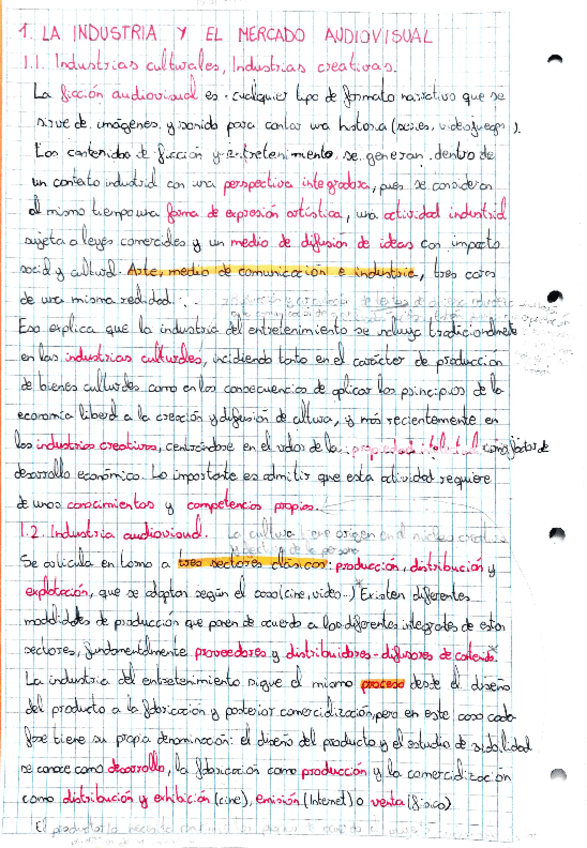 1. LA INDUSTRIA Y EL MERCADO AUDIOVISUAL
1.1. Industrias culturales, Industrias creativas.
La ficción audiovisual es cualquier tipo de formato narrativo que se
sirve de imágenes y sonido para contar una historia (series, videojuegos).
Los contenidos de ficción y entretenimiento se generan dentro de
un contexto industrial con una perspectiva integradora, pues se consideran
al mismo tiempo una forma de expresión artística, una actividad industrial
sujeta a leyes comerciales y un medio de difusión de ideas con impacto
social y cultural. Arte, medio de comunicación e industria, tres caras
de una misma realidad.
Eso explica que la industria del entretenimiento se incluya tradicionalmente
en las industrias culturales, incidiendo tanto en el carácter de producción
de bienes culturales como en las consecuencias de aplicar los principios de la
economía liberal a la creación y difusión de cultura, y más recientemente en
las industrias creativas, centrándose en el valor de la propiedad intelectual como factor de
desarrollo económico. Lo importante es admitir que esta actividad requiere
de unos conocimientos y competencias propios.
1.2. Industria audiovisual. La cultura tiene origen en el núcleo creativo
Se articula en torno a tres sectores clásicos: producción, distribución y
explotación, que se adaptan según el caso (cine, video..) Existen diferentes
modalidades de producción que ponen de acuerdo a los diferentes integrantes de estos
sectores, fundamentalmente proveedores y distribuidores-difusores de contenido.
La industria del entretenimiento sigue el mismo proceso desde el diseño
del producto a la fabricación y posterior comercialización, pero en este caso cada
fase tiene su propia denominación: el diseño del producto y el estudio de viabilidad
se conoce como desarrollo, la fabricación como producción y la comercialización
como distribución y exhibición (cine), emisión (Internet) o venta (físico)
El productor